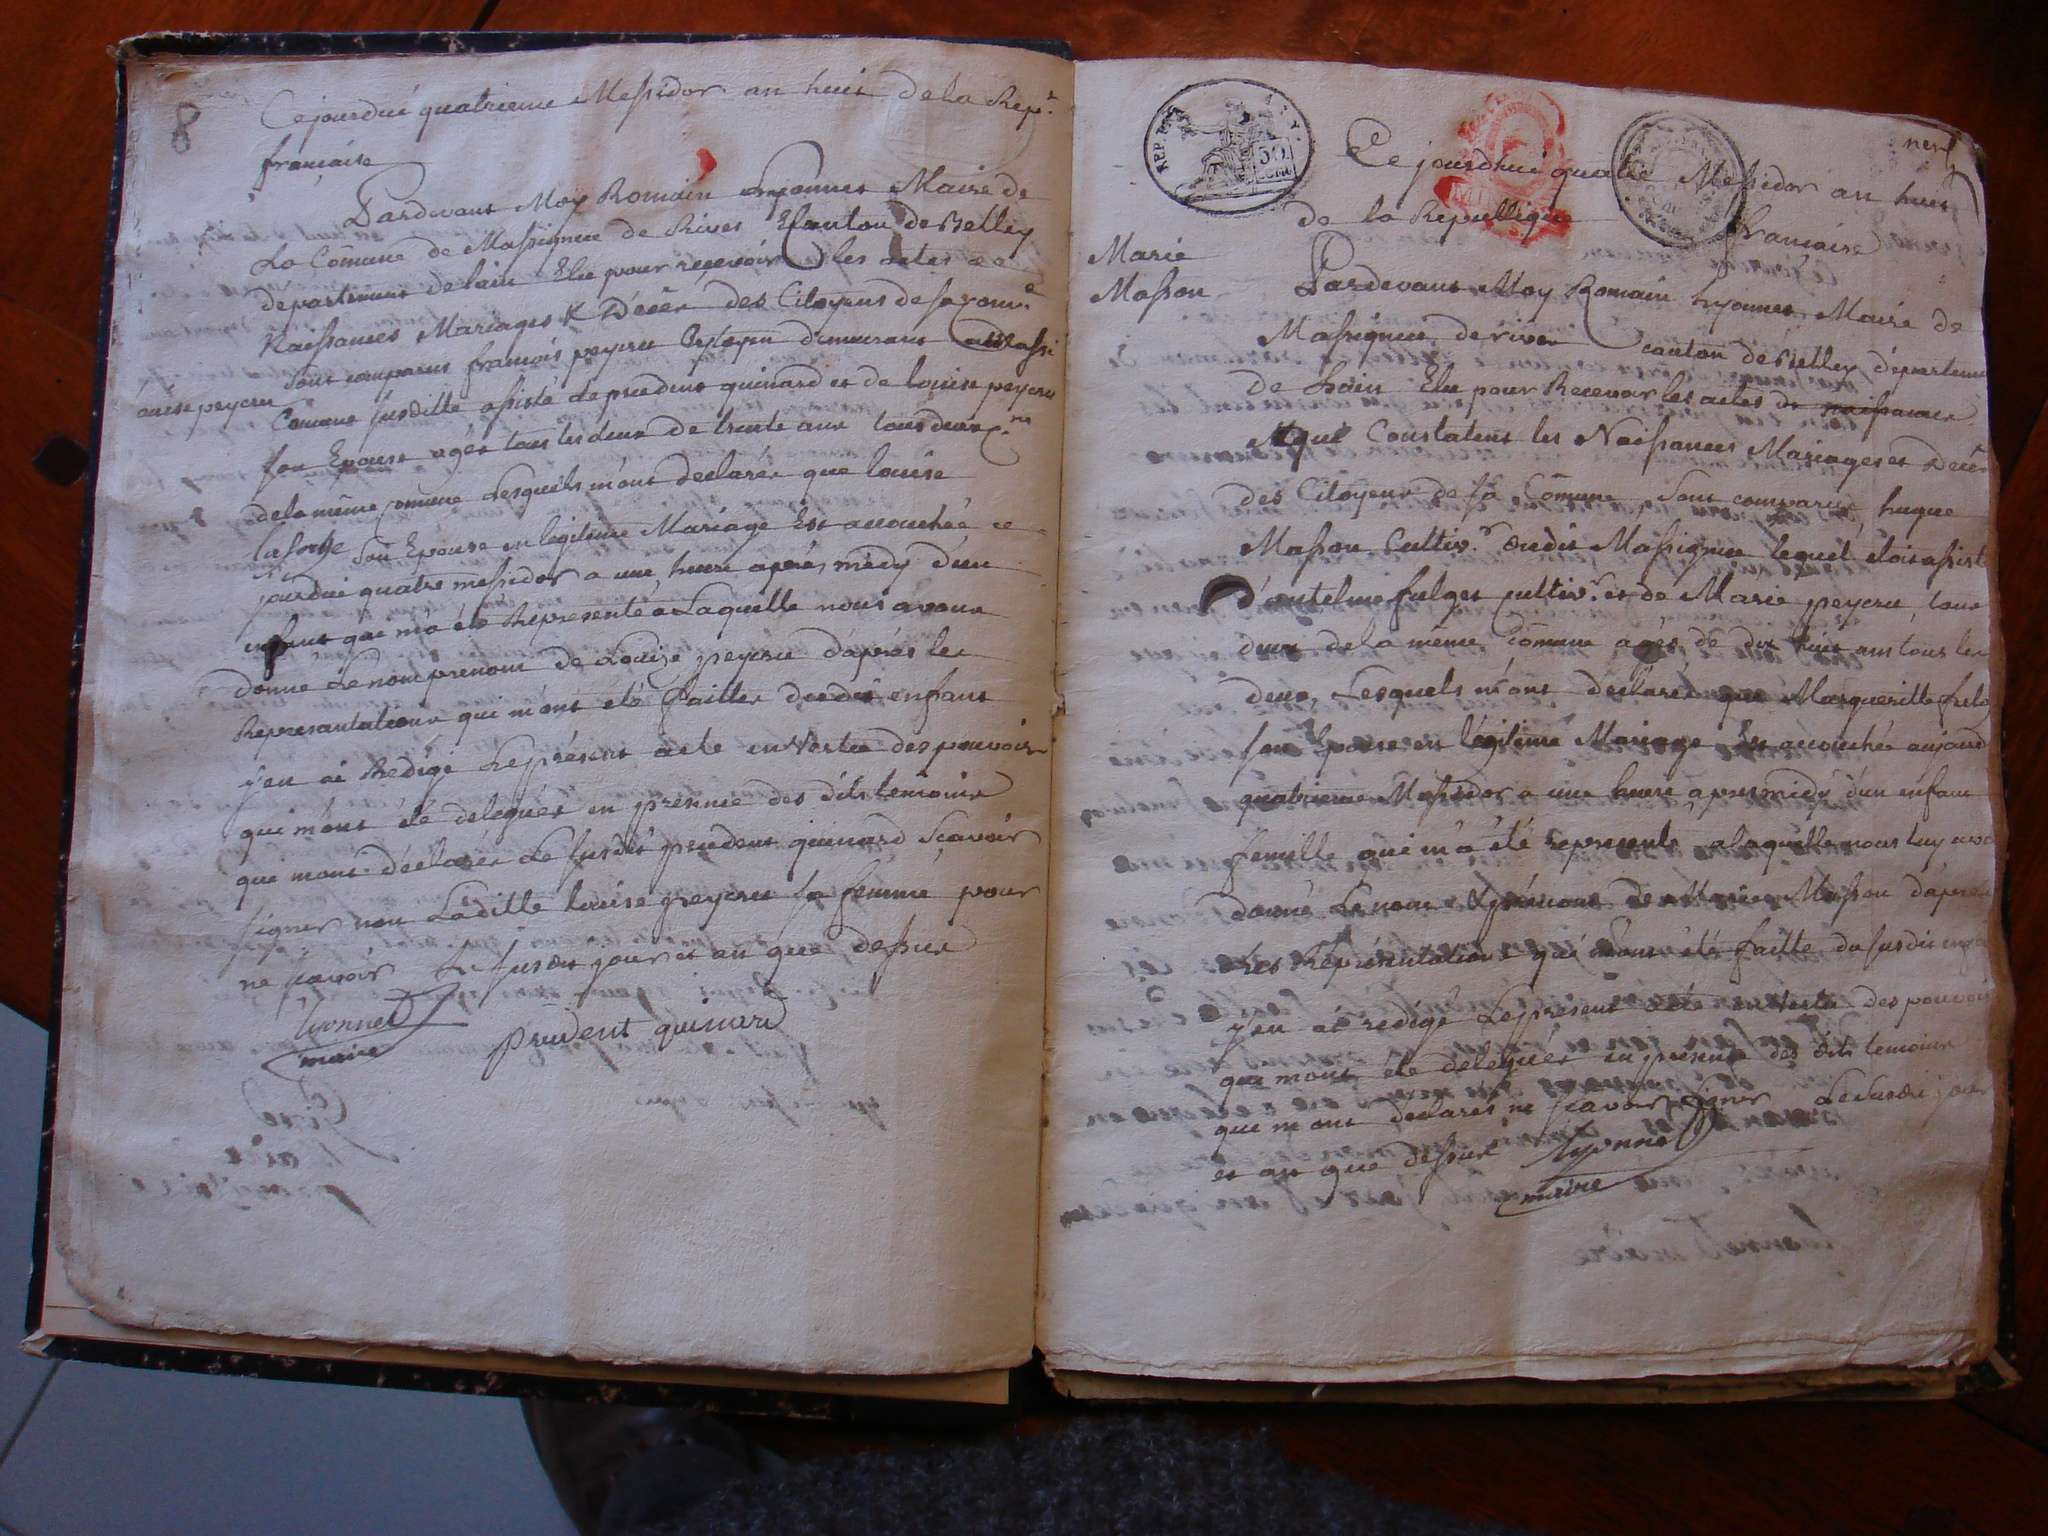 8
Ce jourdui quatrieme Messidor an huit de la Rep.e
francaise
Pardevant Moy Romain huyonnet Maire de
La Comune de Massignieu de Rives Canton de Belley
departement de lain Elu pour recevoir les actes de
Naissances Mariages & Décès des Citoyens de sa comu.e
Sont comparus francois peycru Citoyen demeurant a Massi
ouise peycru
Comune susditte assisté de prudent guinard et de louise peycru
son Epouse agés tous les deux de trente ans tous deux
de la même comune Lesquels m'ont declarés que louise
son Epouse en légitime Mariage Est accouchée ce
jourdui quatre messidor a une heure aprés midy d'un
enfant qui m'a été Représenté a Laquelle nous avons
donné Le nom prenom de Louise peycru d'aprés les
Représantations qui m'ont été faittes dudit enfant
j'en ai Redigé Le présent acte en Vertu des pouvoir
qui m'ont été delegués en presence des dits temoins
qui m'ont déclarés Le susdit prudent guinard scavoir
signer non Laditte louise peycru sa femme pour
ne scavoir Le susdit jour et an que dessus
prudent guinard
maire
REP. FRA.
50
CENT.
neuf
Ce jourdhui quatre Messidor an huit
de la Republique francaise
Marie
Masson
Pardevant Moy Romain huyonnet Maire de
Massignieu de rives canton de Belley départeme
de Lain Elu pour Recevoir les actes de naissance
qui Constatent les Naissances Mariages et Décès
des Citoyens de sa Comune Sont comparus hugue
Masson Cultiv.r dudit Massignieu lequel etoit assisté
d'antelme fulget cultiv.r et de Marie peycru tous
deux de la même Comune agés de dix huit ans tous les
deux, Lesquels m'ont declarés que Margueritte
son Epouse en légitime Mariage Est accouchée aujourd
quatrieme Messidor a une heure apres midy d'un enfant
femelle qui m'a été représenté a laquelle nous luy avo
donné Le nom & prénom de Marie Masson d'apres
Les Représentations qui m'ont été faitte du susdit
j'en ai redigé Le présent acte en Vertu des pouvoir
qui m'ont été delegués en presence des dits temoins
qui m'ont declarés ne scavoir signer Le susdit jour
et an que dessus
maire